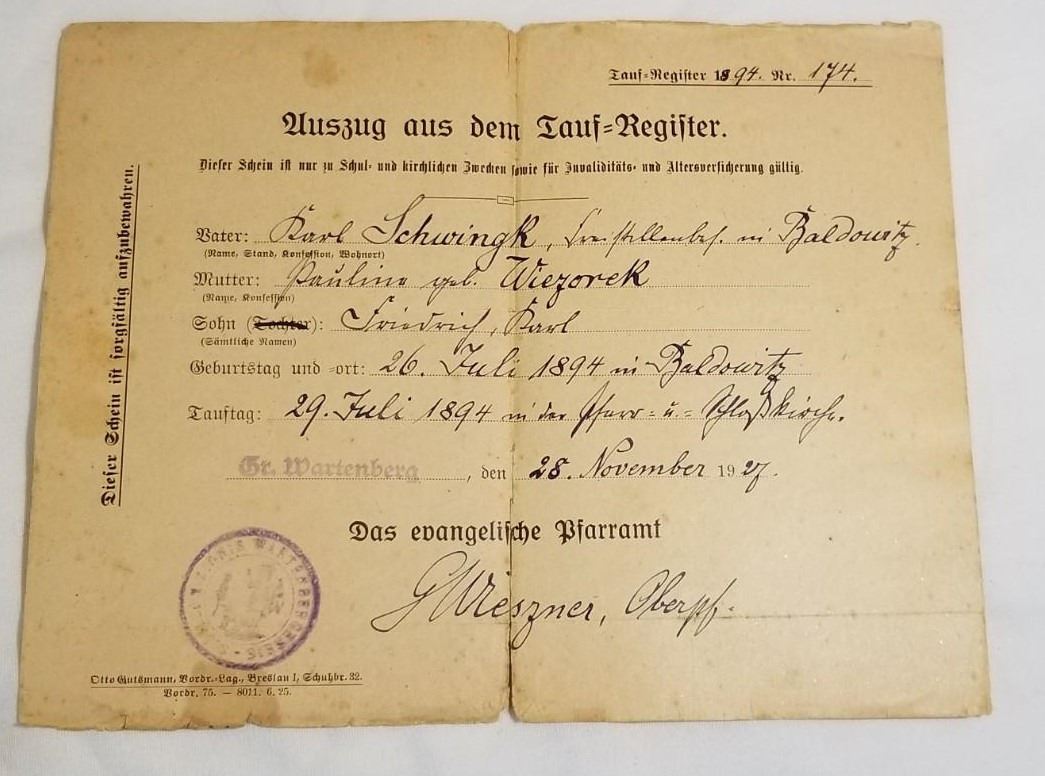 Tauf-Register 1894. Nr. 174.
Auszug aus dem Tauf-Register.
Dieser Schein ist nur zu Schul- und kirchlichen Zwecken sowie für Invaliditäts- und Altersversicherung gültig.
Dieser Schein ist sorgfältig aufzubewahren.
Vater: Karl Schwingk, Freistellenbes. in Baldowitz.
(Name, Stand, Konfession, Wohnort)
Mutter: Pauline geb. Wiezorek
(Name, Konfession)
Sohn (Tochter): Friedrich, Karl
(Sämtliche Namen)
Geburtstag und -ort: 26. Juli 1894 in Baldowitz
Tauftag: 29. Juli 1894 in der Pfarr- u. Schloßkirche.
Gr. Wartenberg, den 28. November 1927.
Das evangelische Pfarramt
GWieszner, Oberpf.
WARTENBERGENSIS
Otto Gutsmann, Vordr.-Lag., Breslau I, Schuhbr. 32.
Vordr. 75. — 8011. 6. 25.